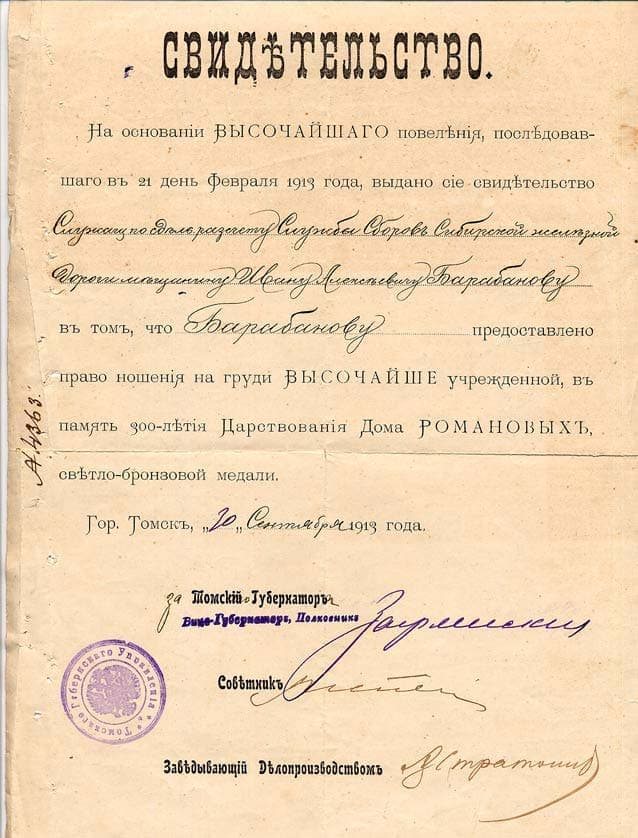 СВИДѢТЕЛЬСТВО.
На основаніи ВЫСОЧАЙШАГО повелѣнія, послѣдовав-
шаго въ 21 день Февраля 1913 года, выдано сіе свидѣтельство
Служащ. по сдѣль. разсчету Службы Сборовъ Сибирской желѣзной
дороги мѣщанину Ивану Алексѣевичу Барабанову
въ томъ, что Барабанову предоставлено
право ношенія на груди ВЫСОЧАЙШЕ учрежденной, въ
память 300-лѣтія Царствованія Дома РОМАНОВЫХЪ,
свѣтло-бронзовой медали.
Гор. Томскъ, „20„ Сентября 1913 года.
А 4363.
за Томскій Губернаторъ
Вице-Губернаторъ, Полковникъ
Совѣтникъ
Завѣдывающій Дѣлопроизводствомъ
* Томскаго Губернскаго Управленія *